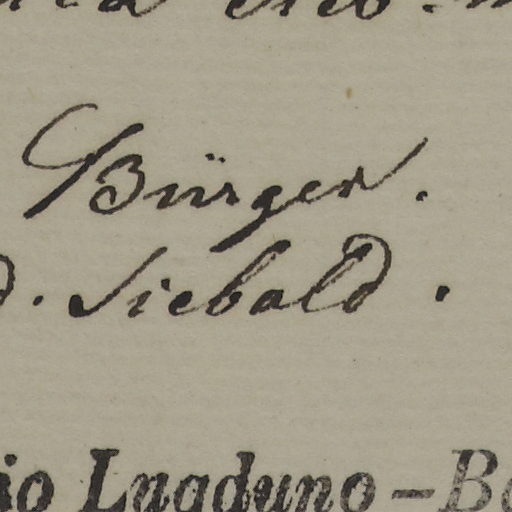 Bürger.
d. Siebald.
io Lugduno-Ba